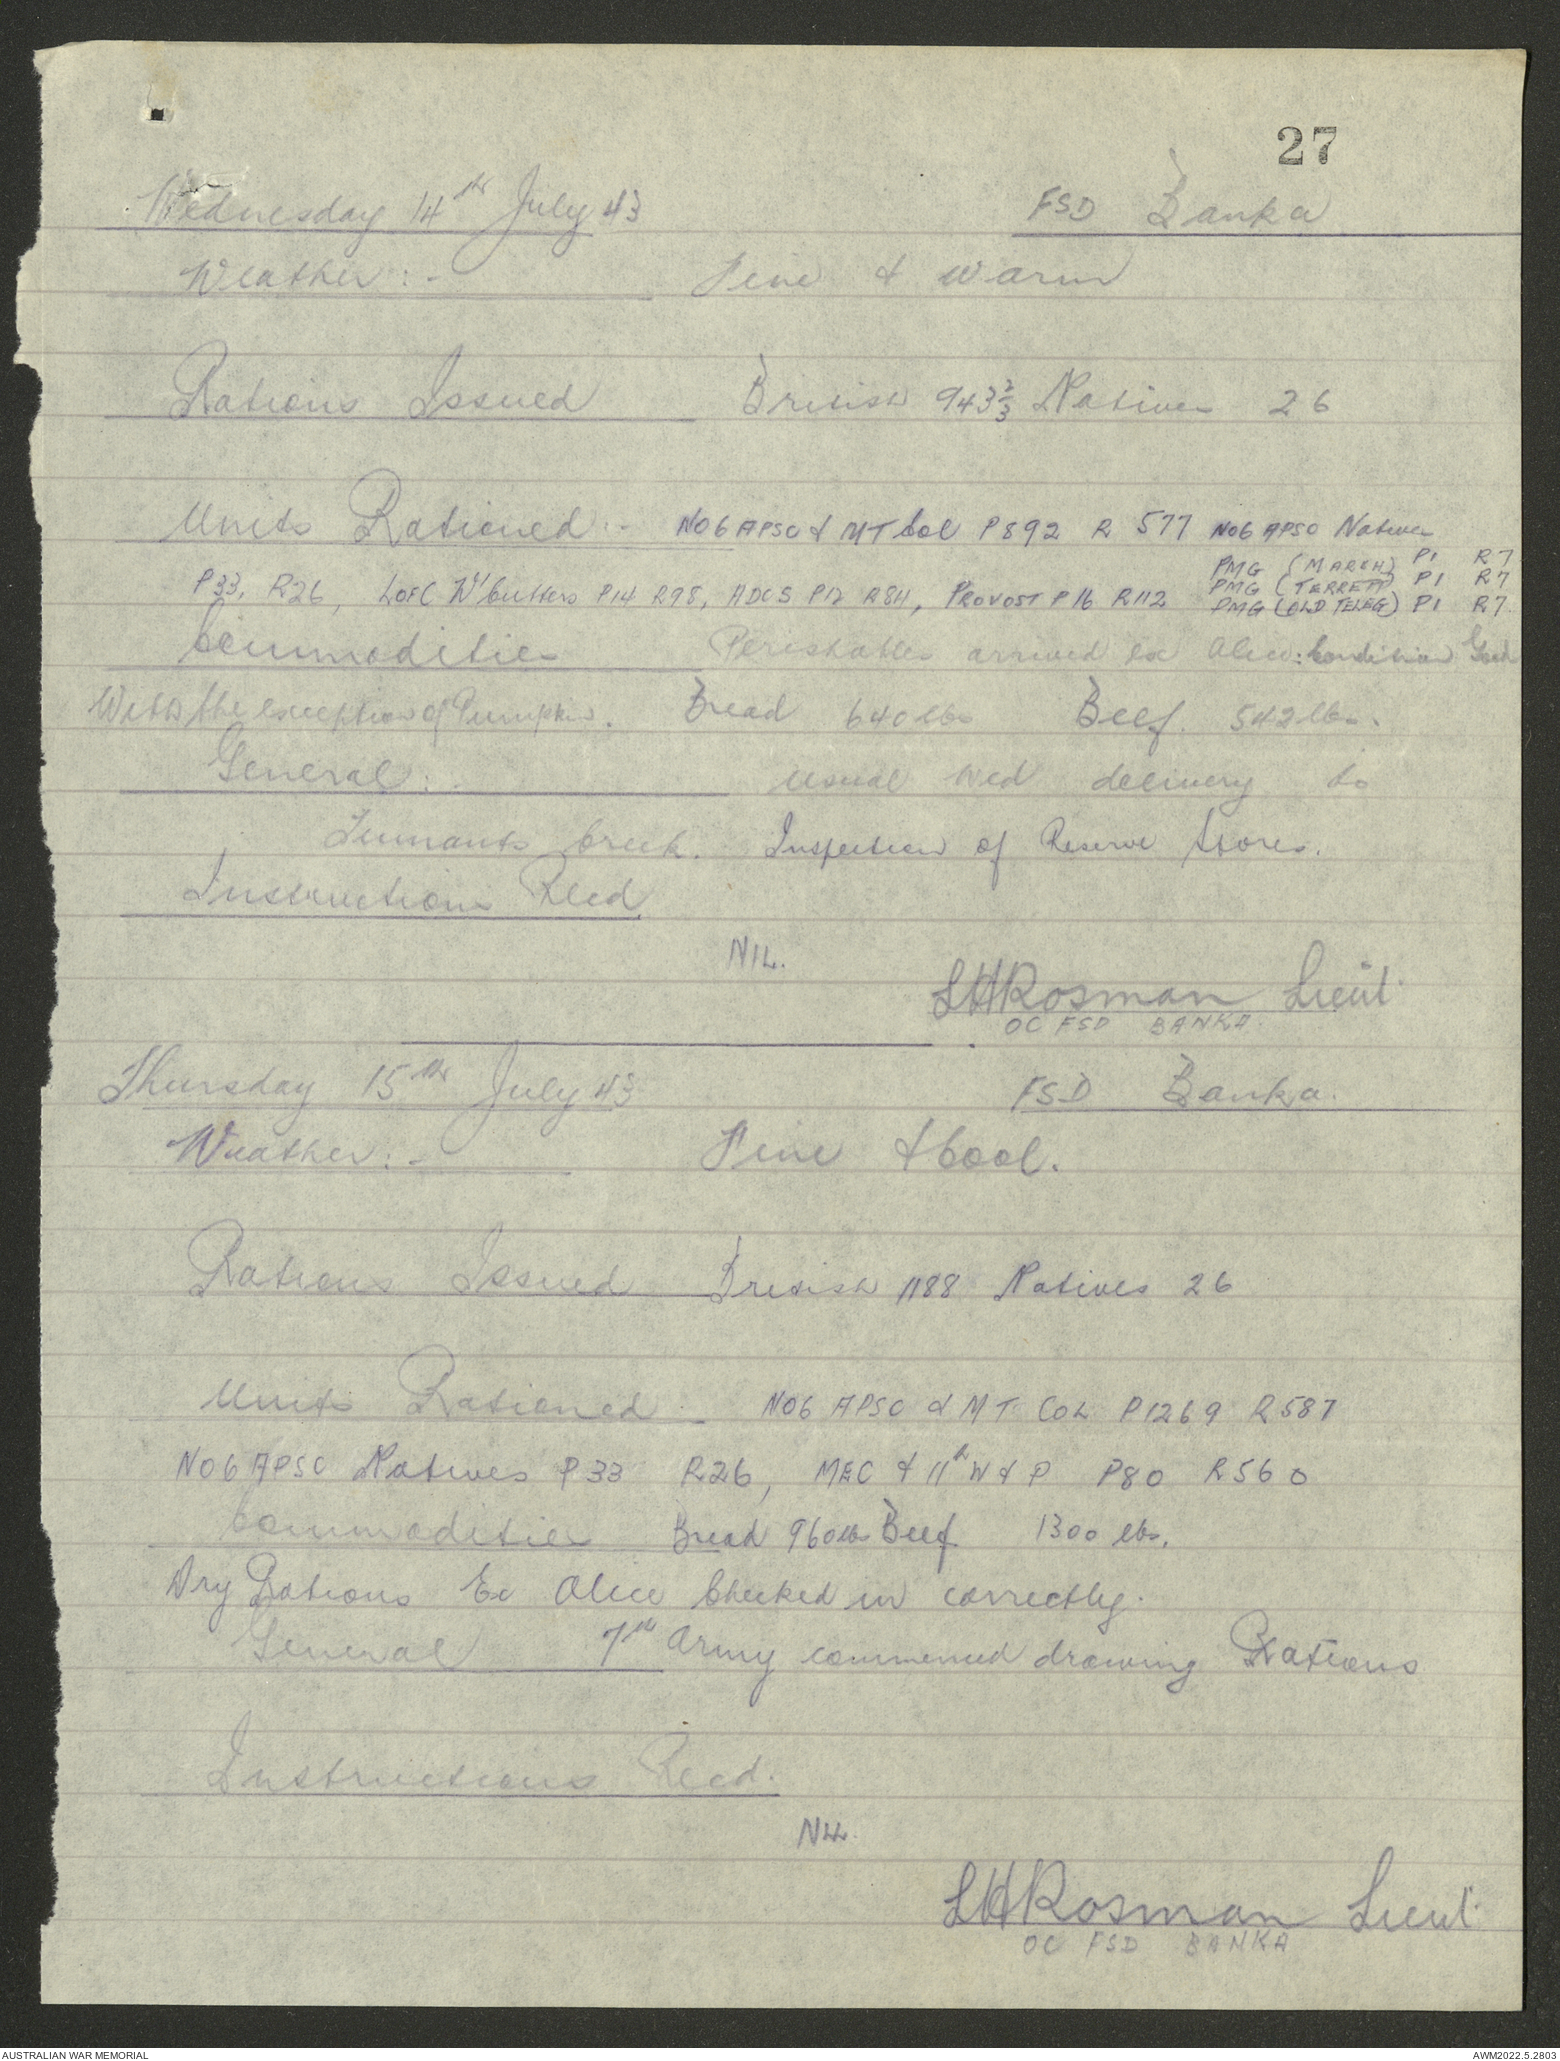 27
Wednesday 14th July 43 FSD Banka
Weather:- Fine & Warm
Rations Issued British 943 2/3 Natives 26
Units Rationed:- NO6 APSC & MT Col P892 R 577 NO6 APSC Natives
PMG (MARCH) P1 R7
PMG (TERRETT) P1 R7
P33, R26, LOFC W'Cutters P14 R98, ADCS P12 R84, PROVOST P16 R112 PMG (OLD TELEG) P1 R7.
Commodities Perishables arrived ex Alice: Condition Good
With the exception of Pumpkin. Bread 640 lbs Beef. 542 lbs.
General:- Usual Wed delivery to
Tennants Creek. Inspection of Reserve Stores.
Instructions Recd
NIL.
LHRosman Lieut.
OC FSD BANKA.
Thursday 15th July 43 FSD Banka.
Weather:- Fine & Cool.
Rations Issued British 1188 Natives 26
Units Rationed:- NO6 APSC & MT COL P1269 R587
NO6 APSC Natives P33 R26, MEC & 11th W & P P80 R560
Commodities Bread 960 lbs Beef 1300 lbs.
Dry Rations Ex Alice Checked in correctly.
General 7th Army commenced drawing Rations
Instructions Recd.
NIL.
LHRosman Lieut.
OC FSD BANKA
AUSTRALIAN WAR MEMORIAL AWM2022.5.2803